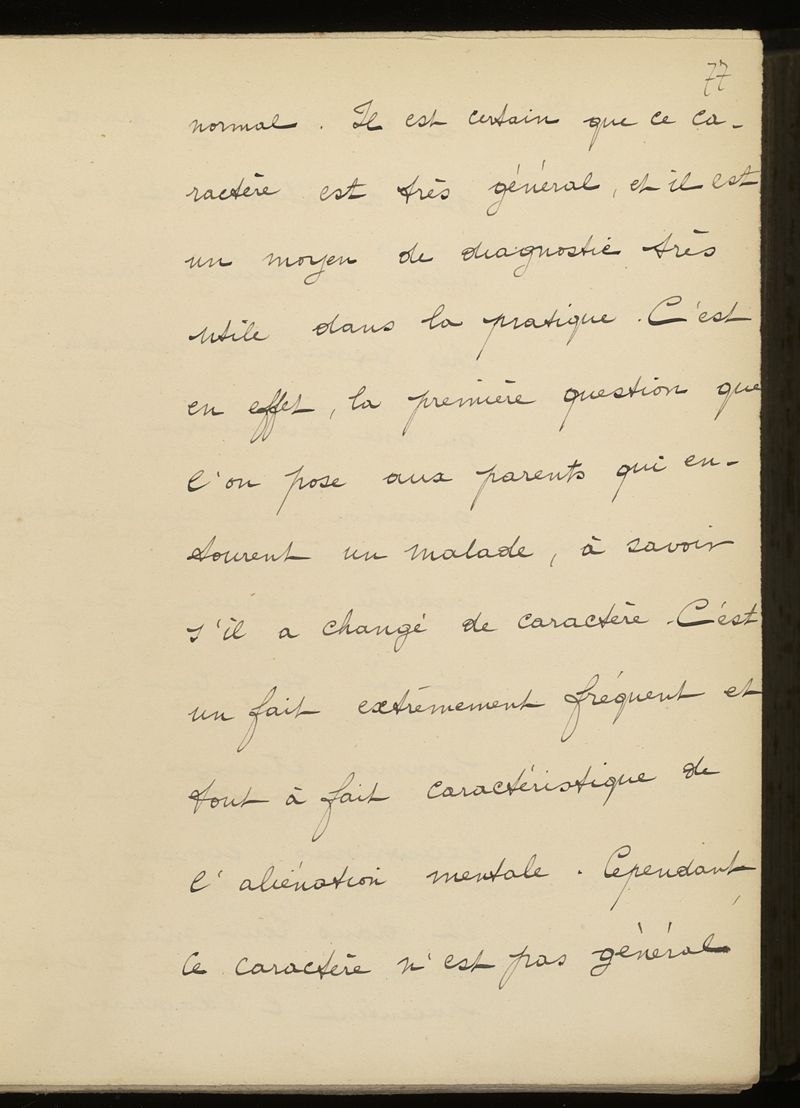 77
normal. Il est certain que ce ca-
ractère est très général, et il est
un moyen de diagnostic très
utile dans la pratique. C'est
en effet, la première question que
l'on pose aux parents qui en-
tourent un malade, à savoir
s'il a changé de caractère. C'est
un fait extrêmement fréquent et
tout à fait caractéristique de
l'aliénation mentale. Cependant,
ce caractère n'est pas général